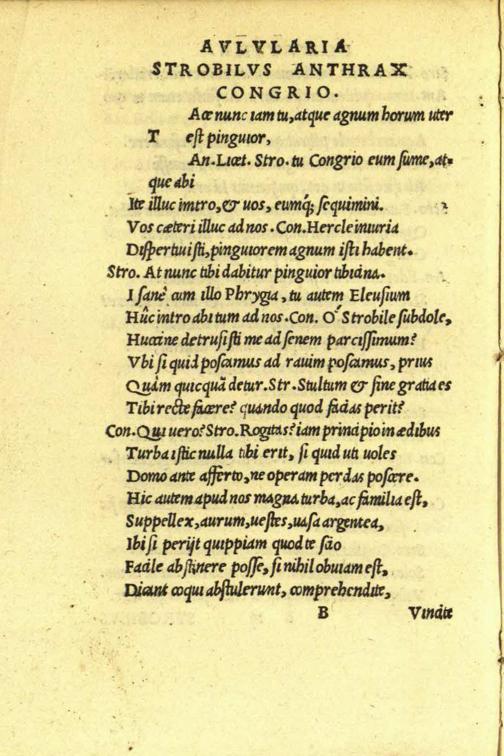 AVLVLARIA
STROBILVS ANTHRAX
CONGRIO.
Ace nunc iam tu, atque agnum horum uter
T est pinguior,
An. Licet. Stro. tu Congrio eum sume, at-
que abi
Ite illuc intro, & uos, eumq; sequimini.
Vos cæteri illuc ad nos. Con. Hercle iniuria
Dispertiuisti, pinguiorem agnum isti habent.
Stro. At nunc tibi dabitur pinguior tibicina.
I sanè cum illo Phrygia, tu autem Eleusium
Hûc intro abi tum ad nos. Con. O Strobile subdole,
Huccine detrusisti me ad senem parcissimum?
Vbi si quid poscamus ad rauim poscamus, prius
Quàm quicquã detur. Str. Stultum & sine gratia es
Tibi recte facere? quando quod facias perit?
Con. Qui uero? Stro. Rogitas? iam principio in ædibus
Turba istic nulla tibi erit, si quid uti uoles
Domo ante afferto, ne operam perdas poscere.
Hic autem apud nos magna turba, ac familia est,
Suppellex, aurum, uestes, uasa argentea,
Ibi si perijt quippiam quod te scio
Facile abstinere posse, si nihil obuiam est,
Dicant coqui abstulerunt, comprehendite,
B Vincite